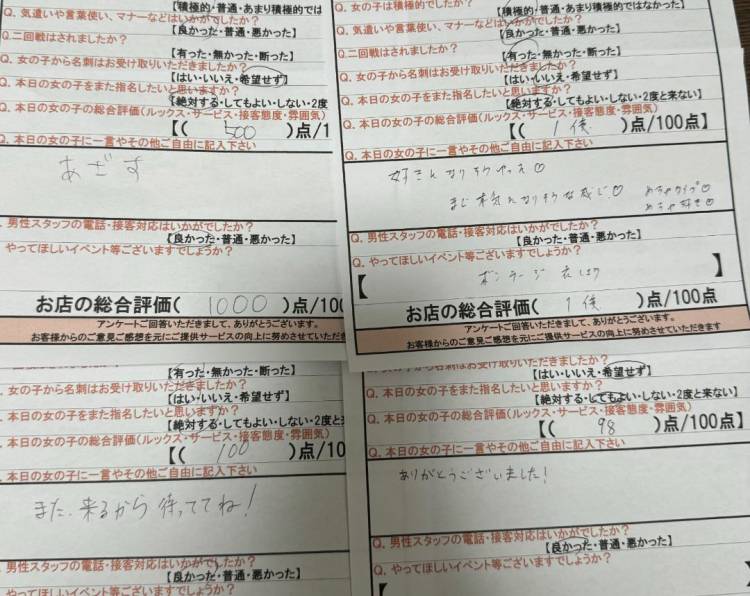 【積極的・普通・あまり積極的では
Q. 気遣いや言葉使い、マナーなどはいかがでしたか？
【良かった・普通・悪かった】
Q.二回戦はされましたか？
【有った・無かった・断った】
Q. 女の子から名刺はお受け取りいただきましたか？
【はい・いいえ・希望せず】
Q. 本日の女の子をまた指名したいと思いますか？
【絶対する・してもよい・しない・2度
Q. 本日の女の子の総合評価(ルックス・サービス・接客態度・雰囲気)
【( 500 )点/1
Q. 本日の女の子に一言やその他ご自由に記入下さい
あざす
男性スタッフの電話・接客対応はいかがでしたか？
【良かった・普通・悪かった】
やってほしいイベント等ございますでしょうか？
お店の総合評価( 1000 )点/100
アンケートご回答いただきまして、ありがとうございます。
お客様からのご意見ご感想を元にご提供サービスの向上に努めさせていただき
Q. 女の子は積極的でしたか？
【積極的・普通・あまり積極的ではなかった】
Q. 気遣いや言葉使い、マナーなどはいかがでしたか？
【良かった・普通・悪かった】
Q.二回戦はされましたか？
【有った・無かった・断った】
Q. 女の子から名刺はお受け取りいただきましたか？
【はい・いいえ・希望せず】
Q. 本日の女の子をまた指名したいと思いますか？
【絶対する・してもよい・しない・2度と来ない】
Q. 本日の女の子の総合評価(ルックス・サービス・接客態度・雰囲気)
【( 1億 )点/100点】
Q. 本日の女の子に一言やその他ご自由に記入下さい
好きになりそうやってえ♡
まじ本気になりそうな感じ♡
めちゃタイプ♡
めちゃ好き♡
Q. 男性スタッフの電話・接客対応はいかがでしたか？
【良かった・普通・悪かった】
Q. やってほしいイベント等ございますでしょうか？
【 ボンテージ 】
お店の総合評価( 1億 )点/100点
アンケートご回答いただきまして、ありがとうございます。
お客様からのご意見ご感想を元にご提供サービスの向上に努めさせていただきます
【有った・無かった・断った】
女の子から名刺はお受け取りいただきましたか？
【はい・いいえ・希望せず】
本日の女の子をまた指名したいと思いますか？
【絶対する・してもよい・しない・2度と来
本日の女の子の総合評価(ルックス・サービス・接客態度・雰囲気)
【( 100 )点/10
本日の女の子に一言やその他ご自由に記入下さい
また、来るから待っててね！
男性スタッフの電話・接客対応はいかがでしたか？
【良かった・普通・悪かった】
やってほしいイベント等ございますでしょうか？
女の子から名刺はお受け取りいただきましたか？
【はい・いいえ・希望せず】
Q. 本日の女の子をまた指名したいと思いますか？
【絶対する・してもよい・しない・2度と来ない】
Q. 本日の女の子の総合評価(ルックス・サービス・接客態度・雰囲気)
【( 98 )点/100点】
Q. 本日の女の子に一言やその他ご自由に記入下さい
ありがとうございました！
Q. 男性スタッフの電話・接客対応はいかがでしたか？
【良かった・普通・悪かった】
Q. やってほしいイベント等ございますでしょうか？